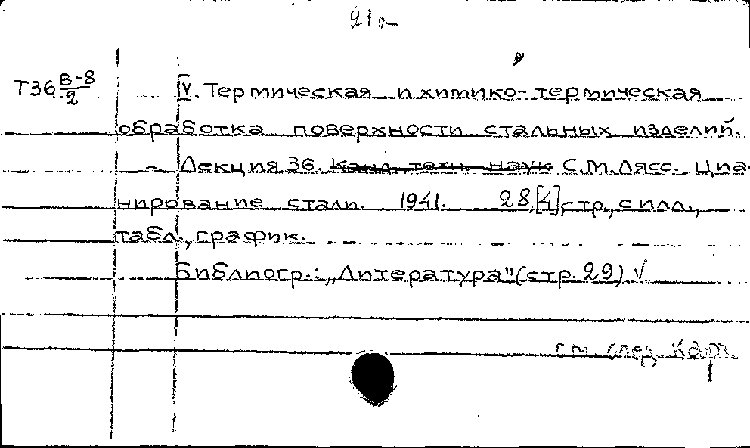 21 о-
Т36 В-8/2 IV. Термическая и химико-термическая
обработка поверхности стальных изделий.
- Лекция 36. Канд. техн. наук С.М.Лясс. Циа-
нирование стали. 1941. 28,[4] стр., с илл.,
табл., график.
Библиогр.: „Литература" (стр. 29) √
см. след. карт.